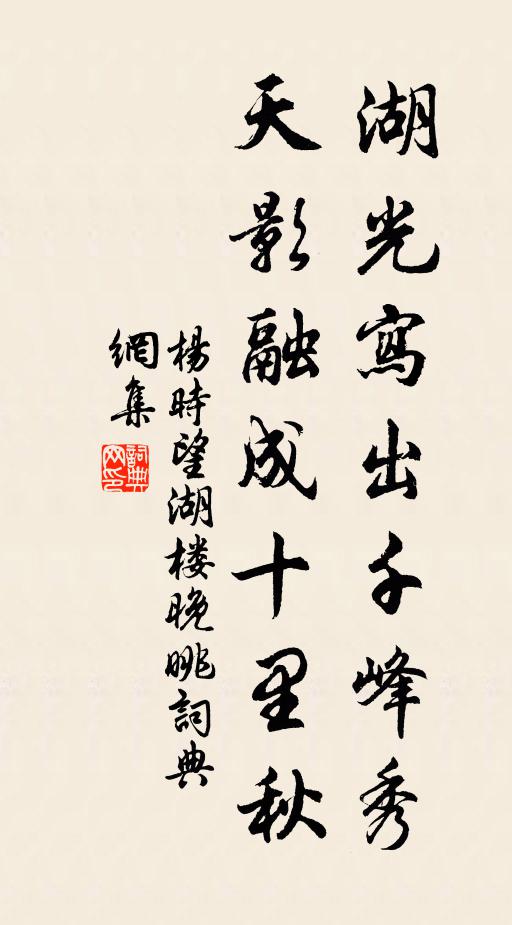 湖光寫出千峰秀
天影融成十里秋
楊時望湖楼晚眺詞典
網集
詞典
网印